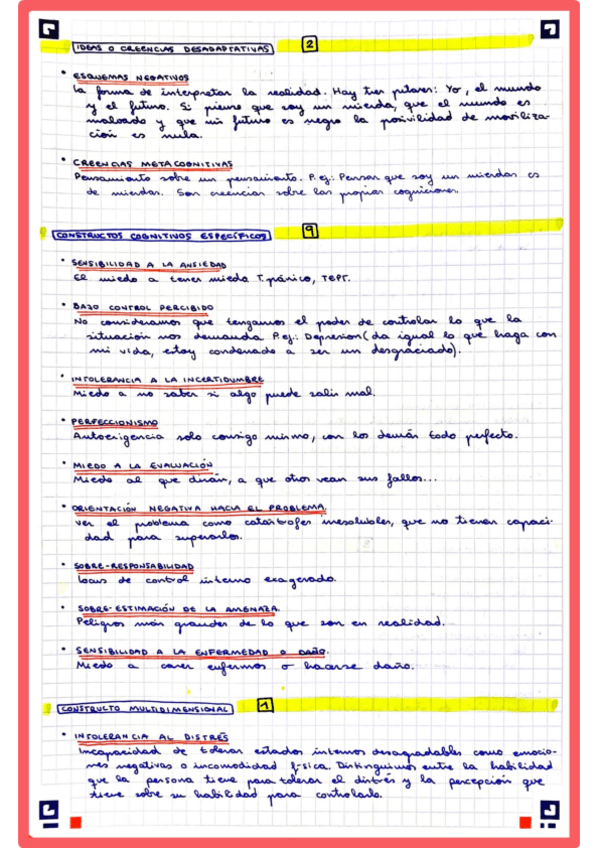 IDEAS O CREENCIAS DESADAPTATIVAS 2
• ESQUEMAS NEGATIVOS
La forma de interpretar la realidad. Hay tres pilares: Yo, el mundo
y el futuro. Si pienso que soy un mierda, que el mundo es
malvado y que mi futuro es negro la posivilidad de moviliza-
ción es nula.
• CREENCIAS METACOGNITIVAS
Pensamiento sobre un pensamiento. P.ej: Pensar que soy un mierdas es
de mierdas. Son creencias sobre las propias cogniciones.
CONSTRUCTOS COGNITIVOS ESPECÍFICOS 9
• SENSIBILIDAD A LA ANSIEDAD
El miedo a tener miedo T.pánico, TEPT.
• BAJO CONTROL PERCIBIDO
No consideramos que tengamos el poder de controlar lo que la
situación nos demanda P.ej.: Depresion (da igual lo que haga con
mi vida, estoy condenado a ser un desgraciado).
• INTOLERANCIA A LA INCERTIDUMBRE
Miedo a no saber si algo puede salir mal.
• PERFECCIONISMO
Autoexigencia solo consigo mismo, con los demás todo perfecto.
• MIEDO A LA EVALUACIÓN
Miedo al que dirán, a que otros vean sus fallos...
• ORIENTACIÓN NEGATIVA HACIA EL PROBLEMA.
Ver el problema como catástrofes irresolubles, que no tienen capaci-
dad para superarlos.
• SOBRE-RESPONSABILIDAD
Locus de control interno exagerado.
• SOBRE-ESTIMACIÓN DE LA AMENAZA.
Peligros más grandes de lo que son en realidad.
• SENSIBILIDAD A LA ENFERMEDAD O DAÑO.
Miedo a caer enfermos o hacerse daño.
CONSTRUCTO MULTIDIMENSIONAL 1
• INTOLERANCIA AL DISTRES
Incapacidad de tolerar estados internos desagradables como emocio-
nes negativas o incomodidad física. Distinguimos entre la habilidad
que la persona tiene para tolerar el distrés y la percepción que
tiene sobre su habilidad para controlarlo.